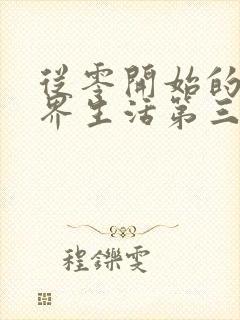 從零開始的
界生活第三
程鑠雯